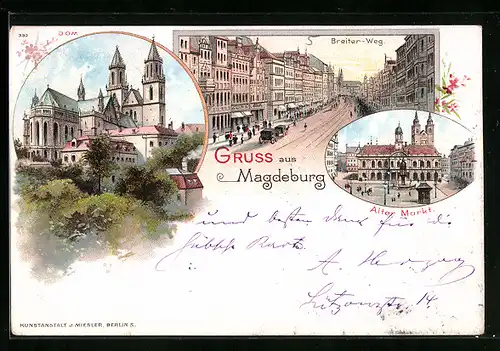 393
DOM
Breiter-Weg.
GRUSS aus
Magdeburg
Alter Markt.
und besten Dank für die
hübsche Karte
A. Herzog
14.
KUNSTANSTALT J. MIESLER, BERLIN S.